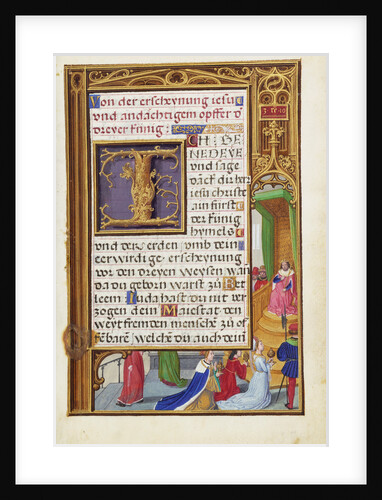 Von der erscheynung iesu
vnd andächtigem opffer d
dreyer künig:
ICH BE
NEDEYE
vnd sage
danck dir her
iesu christe
ain fürst
der künig
hymels
vnd der erden vmb dein
eerwirdige erscheynung
vor den dreyen weysen wan
da du geborn warst zu Bet
leem Juda hast du nit ver
zogen dein Maiestat den
weyt fremden menschē zu of
fēbarē welchē du auch dein